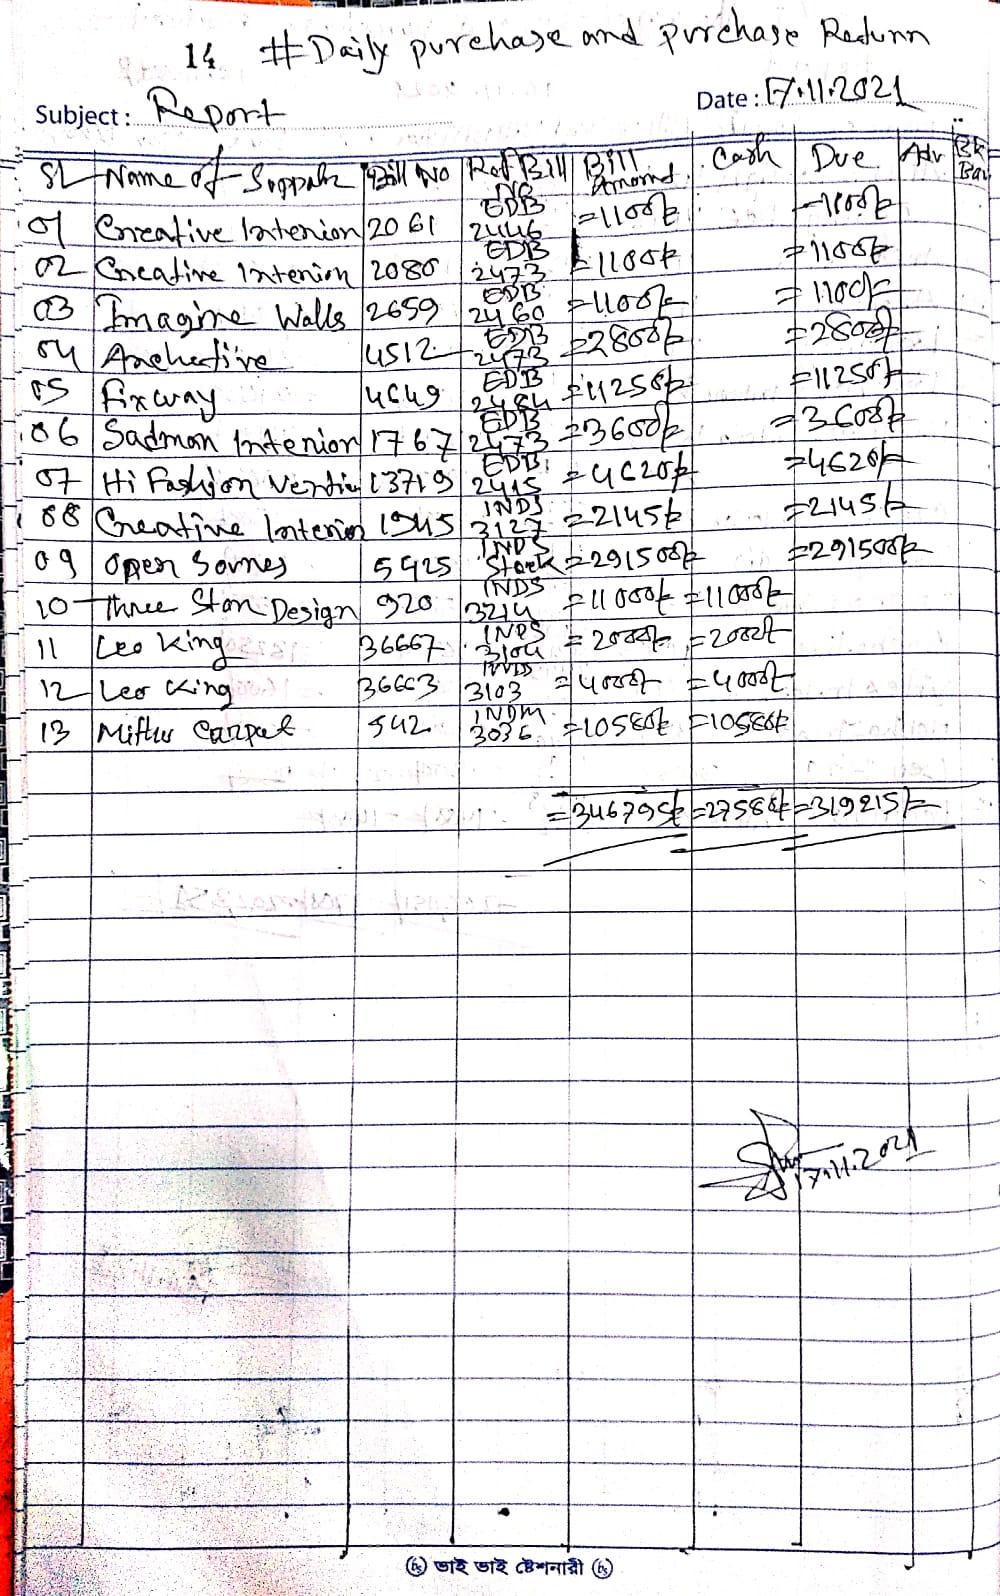 14 # Daily purchase and purchase Redunn
Subject : Report Date : 17.11.2021
SL Name of Suppale Bill No Ref Bill No Bill Amornd Cash Due Adv
01 Creative Interion 2061 EDB 2446 =1100/= =1100/=
02 Creative Interion 2080 EDB 2473 =1100/= =1100/=
03 Imagine Walls 2659 EDB 2460 =1100/= =1100/=
04 4512 EDB 2473 =2800/= =2800/=
05 Fixway 4649 EDB 2484 =11250/= =11250/=
06 Sadmon Interior 1767 EDB 2473 =3600/= =3600/=
07 Hi Fashion 13719 EDB 2415 =4620/= =4620/=
08 Creative Interior 1545 INDS 3127 =2145/= =2145/=
09 Open 5925 INDS Stock =291500/= =291500/=
10 Three Star Design 920 INDS 3214 =11000/= =11000/=
11 Leo King 36667 INDS 3104 =2000/= =2000/=
12 Leo King 36663 INDS 3103 =4000/= =4000/=
13 Miftu Carpet 542 INDM 3036 =10580/= =10580/=
=346795/= =27580/= =319215/=
17.11.2021
ভাই ভাই ষ্টেশনারী